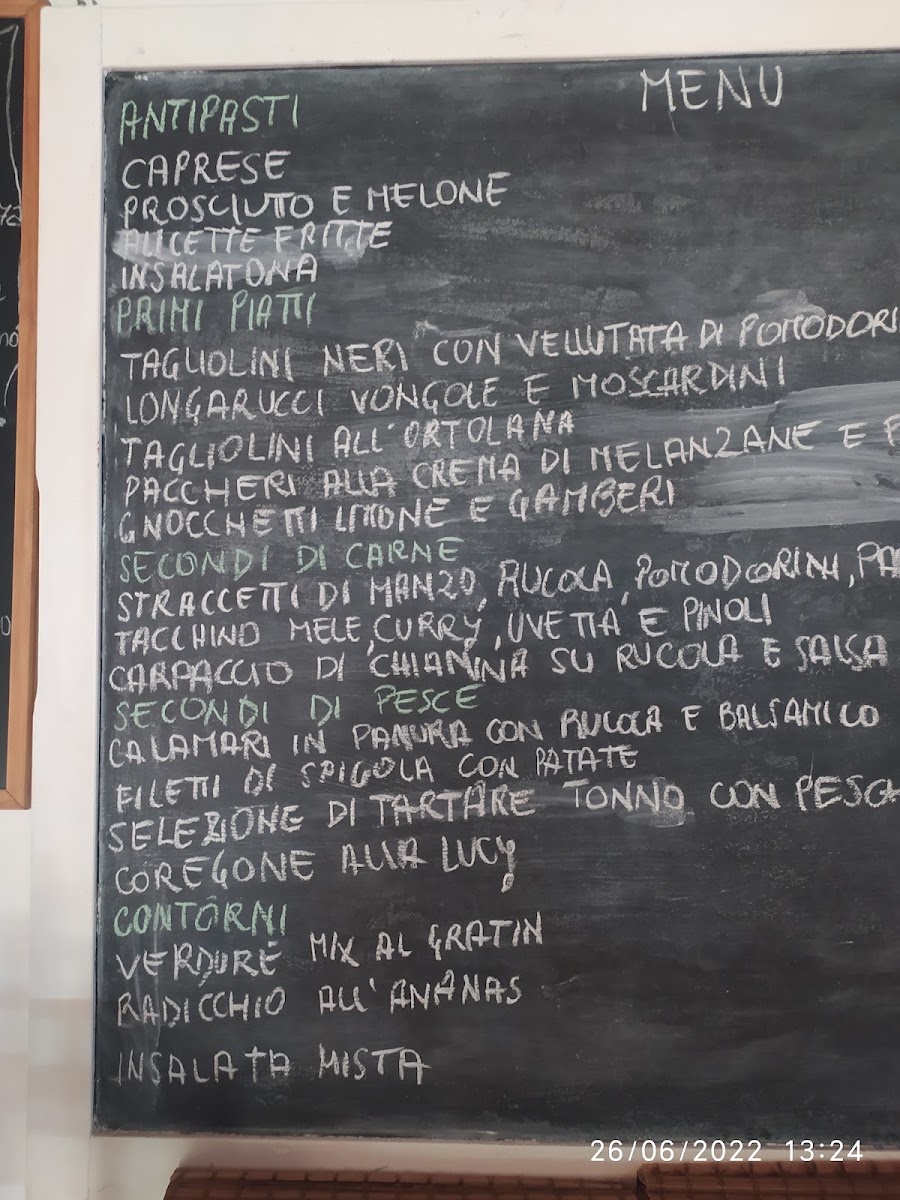 MENU
ANTIPASTI
CAPRESE
PROSCIUTTO E MELONE
ALICETTE FRITTE
INSALATONA
PRIMI PIATTI
TAGLIOLINI NERI CON VELLUTATA DI POMODORI
LONGARUCCI VONGOLE E MOSCARDINI
TAGLIOLINI ALL'ORTOLANA
PACCHERI ALLA CREMA DI MELANZANE E
GNOCCHETTI LIMONE E GAMBERI
SECONDI DI CARNE
STRACCETTI DI MANZO, RUCOLA, POMODORINI,
TACCHINO MELE, CURRY, UVETTA E PINOLI
CARPACCIO DI CHIANINA SU RUCOLA E SALSA
SECONDI DI PESCE
CALAMARI IN PANURA CON RUCOLA E BALSAMICO
FILETTI DI SPIGOLA CON PATATE
SELEZIONE DI TARTARE TONNO CON
COREGONE ALLA LUCY
CONTORNI
VERDURE MIX AL GRATIN
RADICCHIO ALL'ANANAS
INSALATA MISTA
26/06/2022 13:24